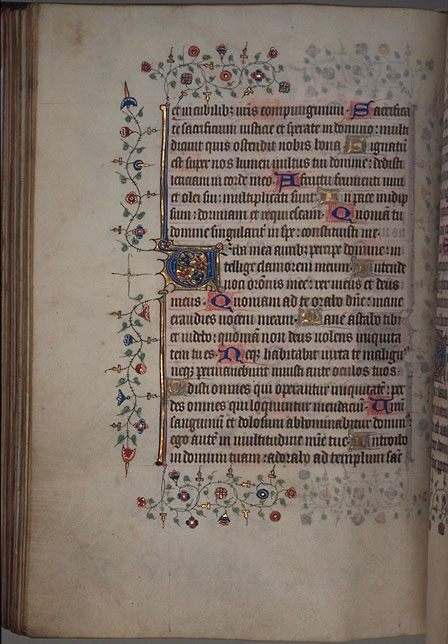 et in cubilibꝫ uris compungimini. Sacrifica
te sacrificium iusticie et sperate in domino: multi
dicunt quis ostendit nobis bona. Signatū
est super nos lumen uultus tui domine: dedisti
leticiam in corde meo. A fructu frumenti uini
et olei sui: multiplicati sunt. In pace in idip
sum: dormiam et requiescam. Quoniā tu
domine singularit in spe: constituisti me.
Uerba mea auribꝫ percipe domine: in
tellige clamorem meum. Intende
uoci orōnis mee: rex meus et deus
meus. Quoniam ad te orabo dñe: mane
exaudies uocem meam. Mane astabo tibi
et uidebo: quoniā non deus uolens iniquita
tem tu es. Neqꝫ habitabit iuxta te malignꝰ
neqꝫ permanebunt iniusti ante oculos tuos
Odisti omnes qui operantur iniquitatē: per
des omnes qui loquuntur mendacium. Uirū
sanguinum et dolosum abhominabitur dominꝰ
ego autē in multitudine mīe tue. Introibo
in domum tuam: adorabo ad templum sanc